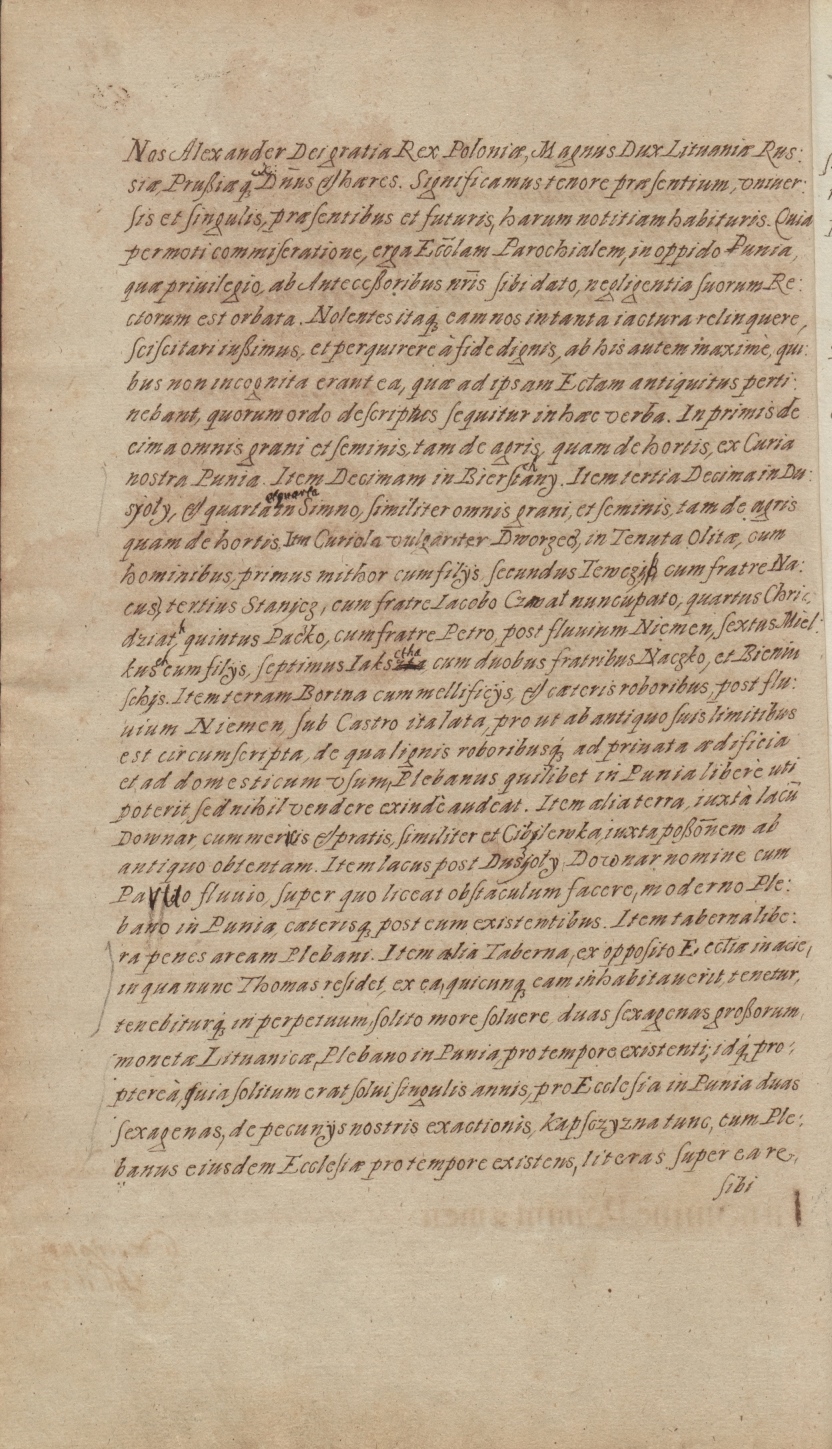 Nos Alexander Dei gratia Rex Poloniæ, Magnus Dux Lituaniæ Rus:
siæ, Prußiæq; Dn̄us et hæres. Significamus tenore præsentium, vniuer:
sis et singulis, præsentibus et futuris, harum notitiam habituris. Quia
permoti commiseratione, erga Eccl̄am Parochialem, in oppido Punia,
quæ priuilegio, ab Antecessoribus nr̄is sibi dato, negligentia suorum Re:
ctorum est orbata. Nolentes itaq; eam nos in tanta iactura relinquere,
sciscitari iußimus, et perquirere à fide dignis, ab his autem maximè, qui:
bus non incognita erant ea, quæ ad ipsam Eccl̄am antiquitus perti:
nebant, quorum ordo descriptus sequitur in hæc verba. Inprimis de
cima omnis grani et seminis, tam de agris, quam de hortis, ex Curia
nostra Punia. Item Decimam in Biersłany. Item tertia Decima in Du:
sjoty, et quarta in Simno, similiter omnis grani, et seminis, tam de agris
et quarta
quam de hortis. Itm Curiola vulgariter Dworzec, in Tenuta Olitæ, cum
hominibus, primus mithor cum filijs, secundus cum fratre Na:
cus, tertius Staniez, cum fratre Iacobo nuncupato, quartus
quintus Packo, cum fratre Petro, post fluuium Niemen, sextus Miel:
kus cum filijs, septimus cum duobus fratribus Naczko, et Bieniu
schjs. Item terram Bortna cum mellificijs, et cæteris roboribus, post flu:
uium Niemen, sub Castro ita lata, pro ut ab antiquo suis limitibus
est circumscripta, de qua lignis roboribusq; ad priuata ædificia
et ad domesticum vsum, Plebanus quilibet in Punia liberè uti
poterit sed nihil vendere exindè audeat. Item alia terra, iuxtà lacū
Downar cum mericis et pratis, similiter et iuxta poßōnem ab
antiquo obtentam. Item lacus post Dusjoty Downar nomine cum
fluuio, super quo liceat obstaculum facere, moderno Ple:
bano in Punia, cæterisq; post eum existentibus. Item taberna libe:
ra penes aream Plebani. Item alia Taberna, ex opposito Ecclīæ in acie,
in qua nunc Thomas residet, ex ea, quicunq; eam inhabitauerit, tenetur,
tenebiturq; in perpetuum, solito more soluere duas sexagenas großorum
monetæ Lituanicæ, Plebano in Punia pro tempore existenti; idq; pro:
ptereà, quia solitum erat solui singulis annis, pro Ecclesia in Punia duas
sexagenas, de pecunijs nostris exactionis, kapsczyzna tunc, cum Ple:
banus eiusdem Ecclesiæ pro tempore existens, literas super ea re,
sibi